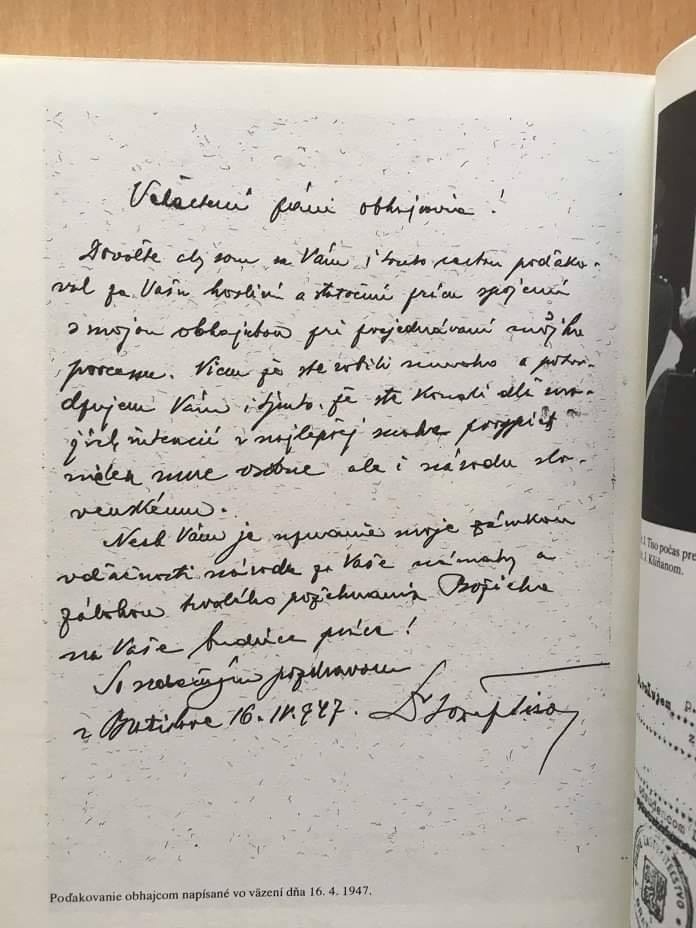 Velactení páni obhajcovia!
Dovoľte aby som sa Vám i touto cestou poďako-
val za Vašu horlivú a statočnú prácu spojenú
s mojou obhajobou pri prejednávaní môjho
procesu. Viem že ste robili mnoho a potvr-
dzujem Vám i týmto, že ste konali dľa mo-
jich intencií v najlepšej snahe prospieť
nielen mne osobne ale i národu slo-
venskému.
Nech Vám je uznanie moje zámkou
vďačnosti národa za Vaše námahy a
zálohou hojného požehnania Božieho
na Vaše budúce práce!
So srdečným pozdravom
v Bratislave 16.IV.947. Dr Jozef Tiso
Poďakovanie obhajcom napísané vo väzení dňa 16. 4. 1947.
Tiso počas pre
Kliňanom.